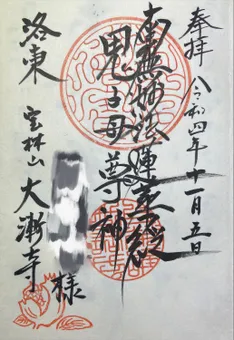 奉拝 令和四年十一月五日
南無妙法蓮華経
鬼子母尊神
様
洛東 宝林山 大漸寺